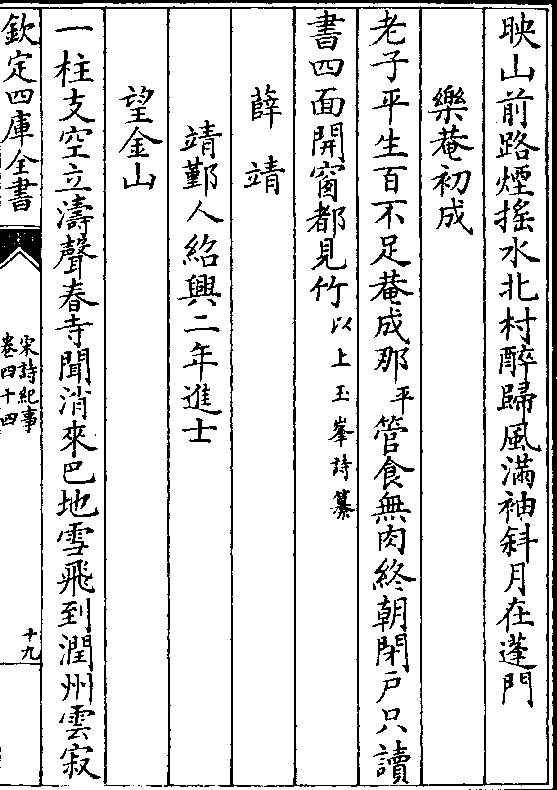 映山前路煙搖水北村醉歸風滿袖斜月在蓬門
樂菴初成
老子平生百不足菴成那平管食無肉終朝閉戸只讀
書四面開窗都見竹以上玉峯詩纂
薛靖
靖鄞人紹興二年進士
望金山
一柱支空立濤聲春寺聞消來巴地雪飛到潤州雲寂
欽定四庫全書
宋詩紀事
卷四十四
十九